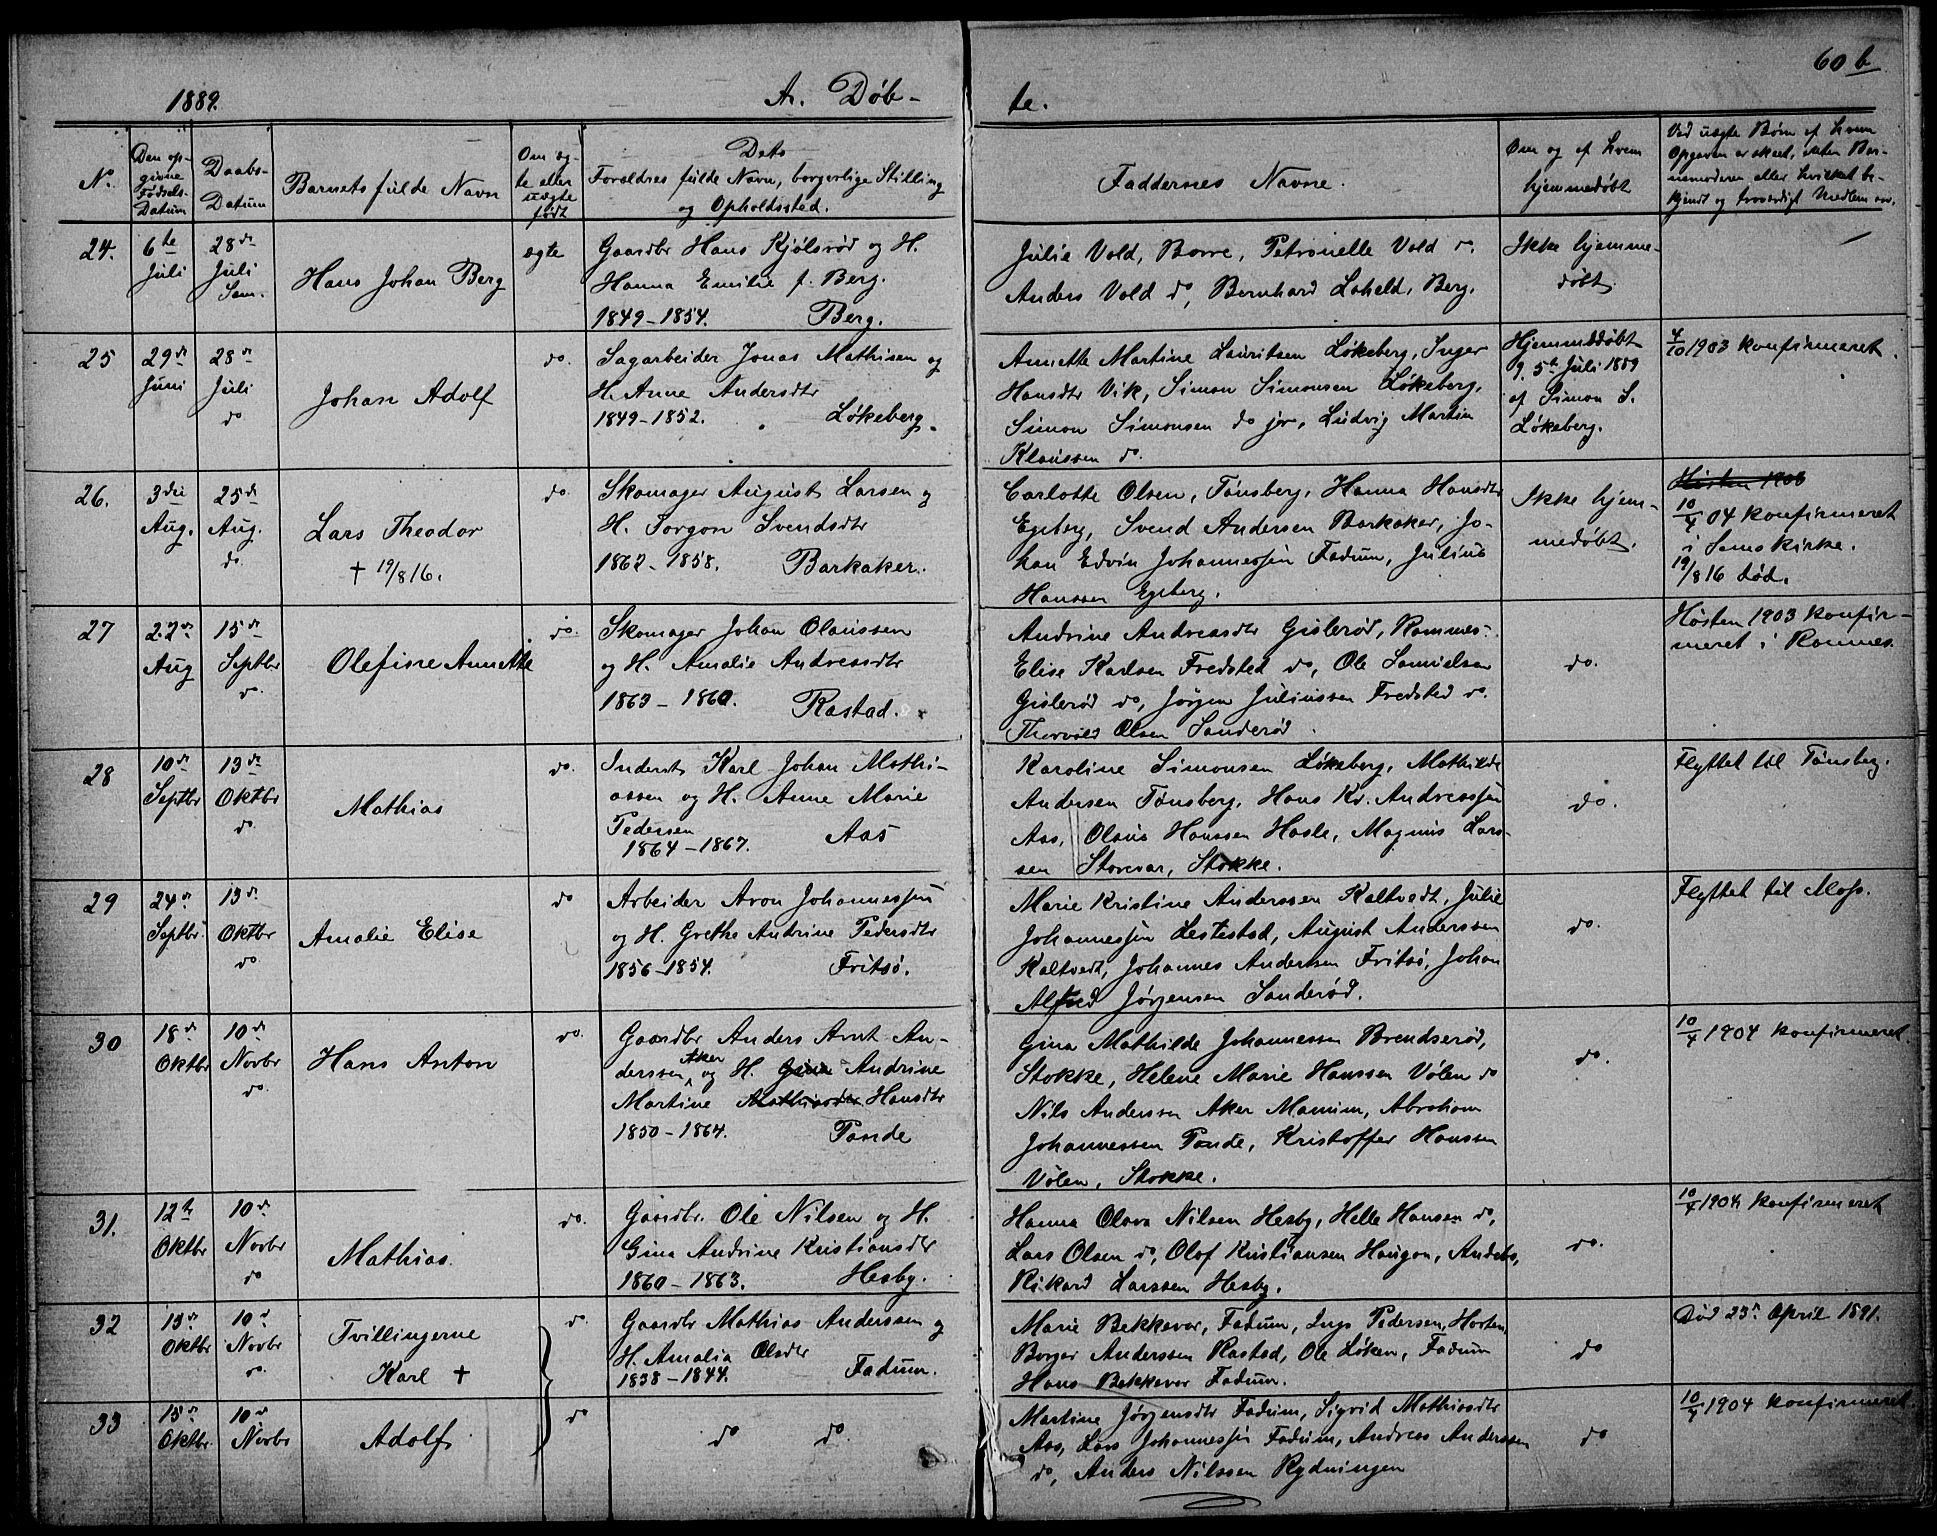 60 b
1889.
A. Døb-
te.
No.
Den op-
givne
Fødsels-
Datum
Daabs-
Datum
Barnets fulde Navn
Om æg-
te eller
uægte
født
Dets
Forældres fulde Navn, borgerlige Stilling
og Opholdssted.
Faddernes Navne.
Om og af hvem
hjemmedøbt
Ved uægte Børn af hvem
Opgaven er skeet, enten Bar-
nemoderen eller hvilket be-
kjendt og troværdigt Medlem
24.
6te
Juli
28de
Juli
Sem.
Hans Johan Berg
ægte
Gaardbr Hans Kjølsrød og H.
Hanna Emilie f. Berg.
1849-1854. Berg.
Julie Vold, Borre, Petronelle Vold do.
Anders Vold do, Bernhard Loheld, Berg.
Ikke hjemme-
døbt.
25
29de
Juni
28de
Juli
do
Johan Adolf
do.
Sagarbeider Jonas Mathisen og
H. Anne Andersdtr
1849-1852. Løkeberg.
Annette Martine Lauritsen Løkeberg, Inger
Hansdtr Vik, Simon Simonsen Løkeberg,
Simon Simonsen do jor, Ludvig Martin
Klaussen do.
Hjemmedøbt
9. 5te Juli 1889
af Simon S.
Løkeberg.
4/10 1903 konfirmeret.
26.
3die
Aug.
25de
Aug.
do.
Lars Theodor
+ 19/8 16.
do.
Skomager August Larsen og
H. Torgon Svendsdtr
1862-1858. Barkaker.
Carlotte Olsen, Tønsberg, Hanna Hansdtr
Egeberg, Svend Andersen Barkaker, Jo-
han Edvin Johannessen Fadum, Julius
Hanssen Egeberg.
Ikke hjem-
medøbt.
Høsten 1903
10/4 04 konfirmeret
i Sems Kirke.
19/8 16 død.
27
22de
Aug
15de
Septbr
do.
Olefine Annette
do.
Skomager Johan Olaussen
og H. Amalie Andreasdtr
1863-1860. Rastad.
Andrine Andreasdtr Gislerød, Ramnes.
Elise Karlsen Fredsted do, Ole Samuelsen
Gislerød do, Jørgen Juliussen Fredsted do.
Thorvald Olsen Sanderød.
do.
Høsten 1903 konfir-
meret i Ramnes.
28
10de
Septbr
13de
Oktbr
do.
Mathias
do.
Inderst Karl Johan Mathi-
assen og H. Anne Marie
Pedersen
1864-1867. Aas
Karoline Simonsen Løkeberg, Mathilde
Andersen Tønsberg, Hans Kr. Andreassen
Aas, Olaus Hanssen Hasle, Magnus Lars-
sen Storevar, Stokke.
do.
Flyttet til Tønsberg.
29
24de
Septbr.
13de
Oktbr
do
Amalie Elise
do
Arbeider Aron Johannessen
og H. Grethe Andrine Pedersdtr
1856-1854. Fritsø.
Marie Kristine Anderssen Kaltvedt, Julie
Johannessen Lestestad, August Anderssen
Kaltvedt, Johannes Andersen Fritsø, Johan
Alfred Jørgensen Sanderød.
do.
Flyttet til Moss.
30
18de
Oktbr
10de
Novbr
do.
Hans Anton
do.
Gaardbr Anders Arnt An-
derssen Aker og H. Gina Andrine
Martine Mathiasdtr Hansdtr
1850-1864. Tande
Gina Mathilde Johannessen Brendserød,
Stokke, Helene Marie Hanssen Vølen do
Nils Anderssen Aker Manum, Abraham
Johannessen Tande, Kristoffer Hanssen
Vølen, Stokke.
do.
10/4 1904 konfirmeret.
31.
12te
Oktbr
10de
Novbr
do
Mathias.
do.
Gaardbr. Ole Nilsen og H.
Gina Andrine Kristiansdtr
1860-1863. Hesby.
Hanna Olava Nilsen Hesby, Helle Hansen do,
Lars Olsen do, Olof Kristiansen Haugan, Anders,
Rikard Larssen Hesby.
do.
10/4 1904 konfirmeret
32
13de
Oktbr
10de
Novbr
do.
Tvillingerne
Karl +
do.
Gaardbr Mathias Anderssen og
H. Amalia Olsdtr
1838-1844. Fadum.
Marie Bekkevar, Fadum, Inga Pedersen, Horten,
Borger Anderssen Rastad, Ole Løken, Fadum
Hans Bekkevar Fadum.
do
Død 23de April 1891.
33
13de
Oktbr.
10de
Novbr
Adolf
do
do do.
Martine Jørgensdtr Fadum, Sigrid Mathiasdtr
Aas, Lars Johannessen Fadum, Andreas Anderssen
do, Anders Nilssen Rydningen
do
10/4 1904 konfirmeret